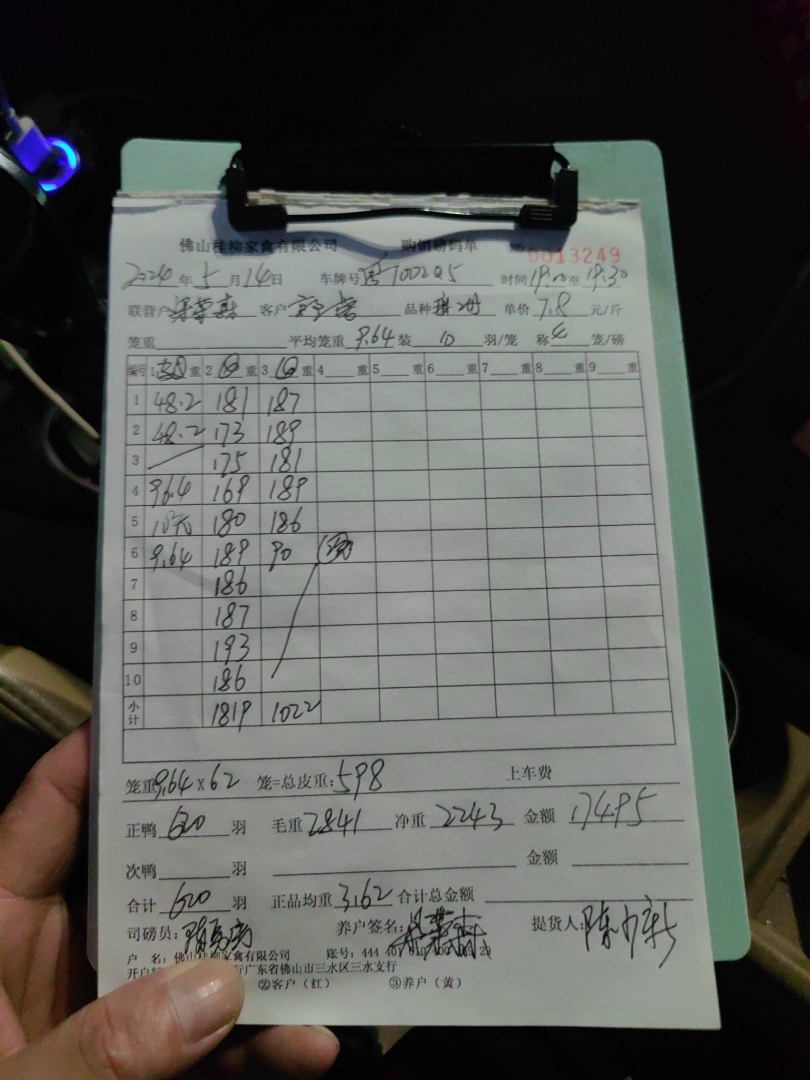 佛山桂柳家禽有限公司 购销磅码单 NO 0013249
2024 年 5 月 14 日 车牌号 100295 时间 19.00 至 19.30
联营户 客户 品种 单价 7.8 元/斤
笼重 平均笼重 9.64 装 10 羽/笼 称 笼/磅
编号 1 重 2 重 3 重 4 重 5 重 6 重 7 重 8 重 9 重
1 48.2 181 187
2 48.2 173 189
3 175 181
4 96.4 169 189
5 180 186
6 9.64 189 90
7 186
8 187
9 193
10 186
小计 1819 1022
笼重 9.64 x 62 笼=总皮重: 598 上车费
正鸭 620 羽 毛重 2841 净重 2243 金额 17495
次鸭 羽 金额
合计 620 羽 正品均重 3.62 合计总金额
司磅员: 养户签名: 提货人:
户 名: 佛山桂柳家禽有限公司 账号: 444
行广东省佛山市三水区三水支行
②客户(红) ③养户(黄)